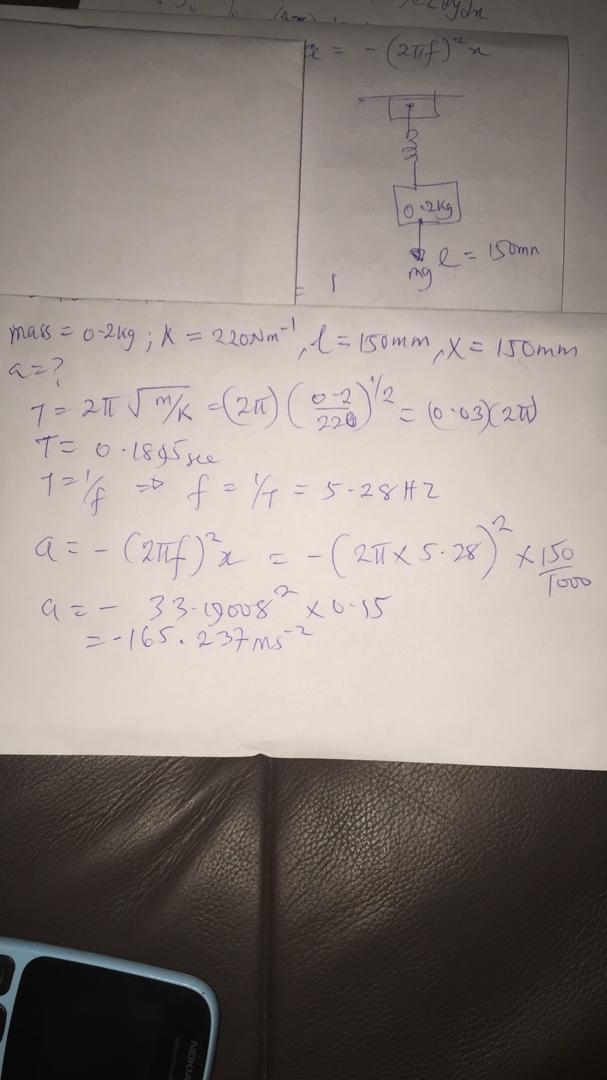 2dydx
x = - (2πf)²x
0.2kg
mg l = 150mm
= 1
mass = 0.2kg ; K = 220Nm⁻¹, l = 150mm, X = 150mm
a = ?
T = 2π √m/K = (2π) (0.2/220)^1/2 = (0.03)(2π)
T = 0.1895 sec
T = 1/f ⇒ f = 1/T = 5.28HZ
a = - (2πf)²x = - (2π × 5.28)² × 150/1000
a = - 33.19008² × 0.15
= -165.237ms⁻²
NOKIA